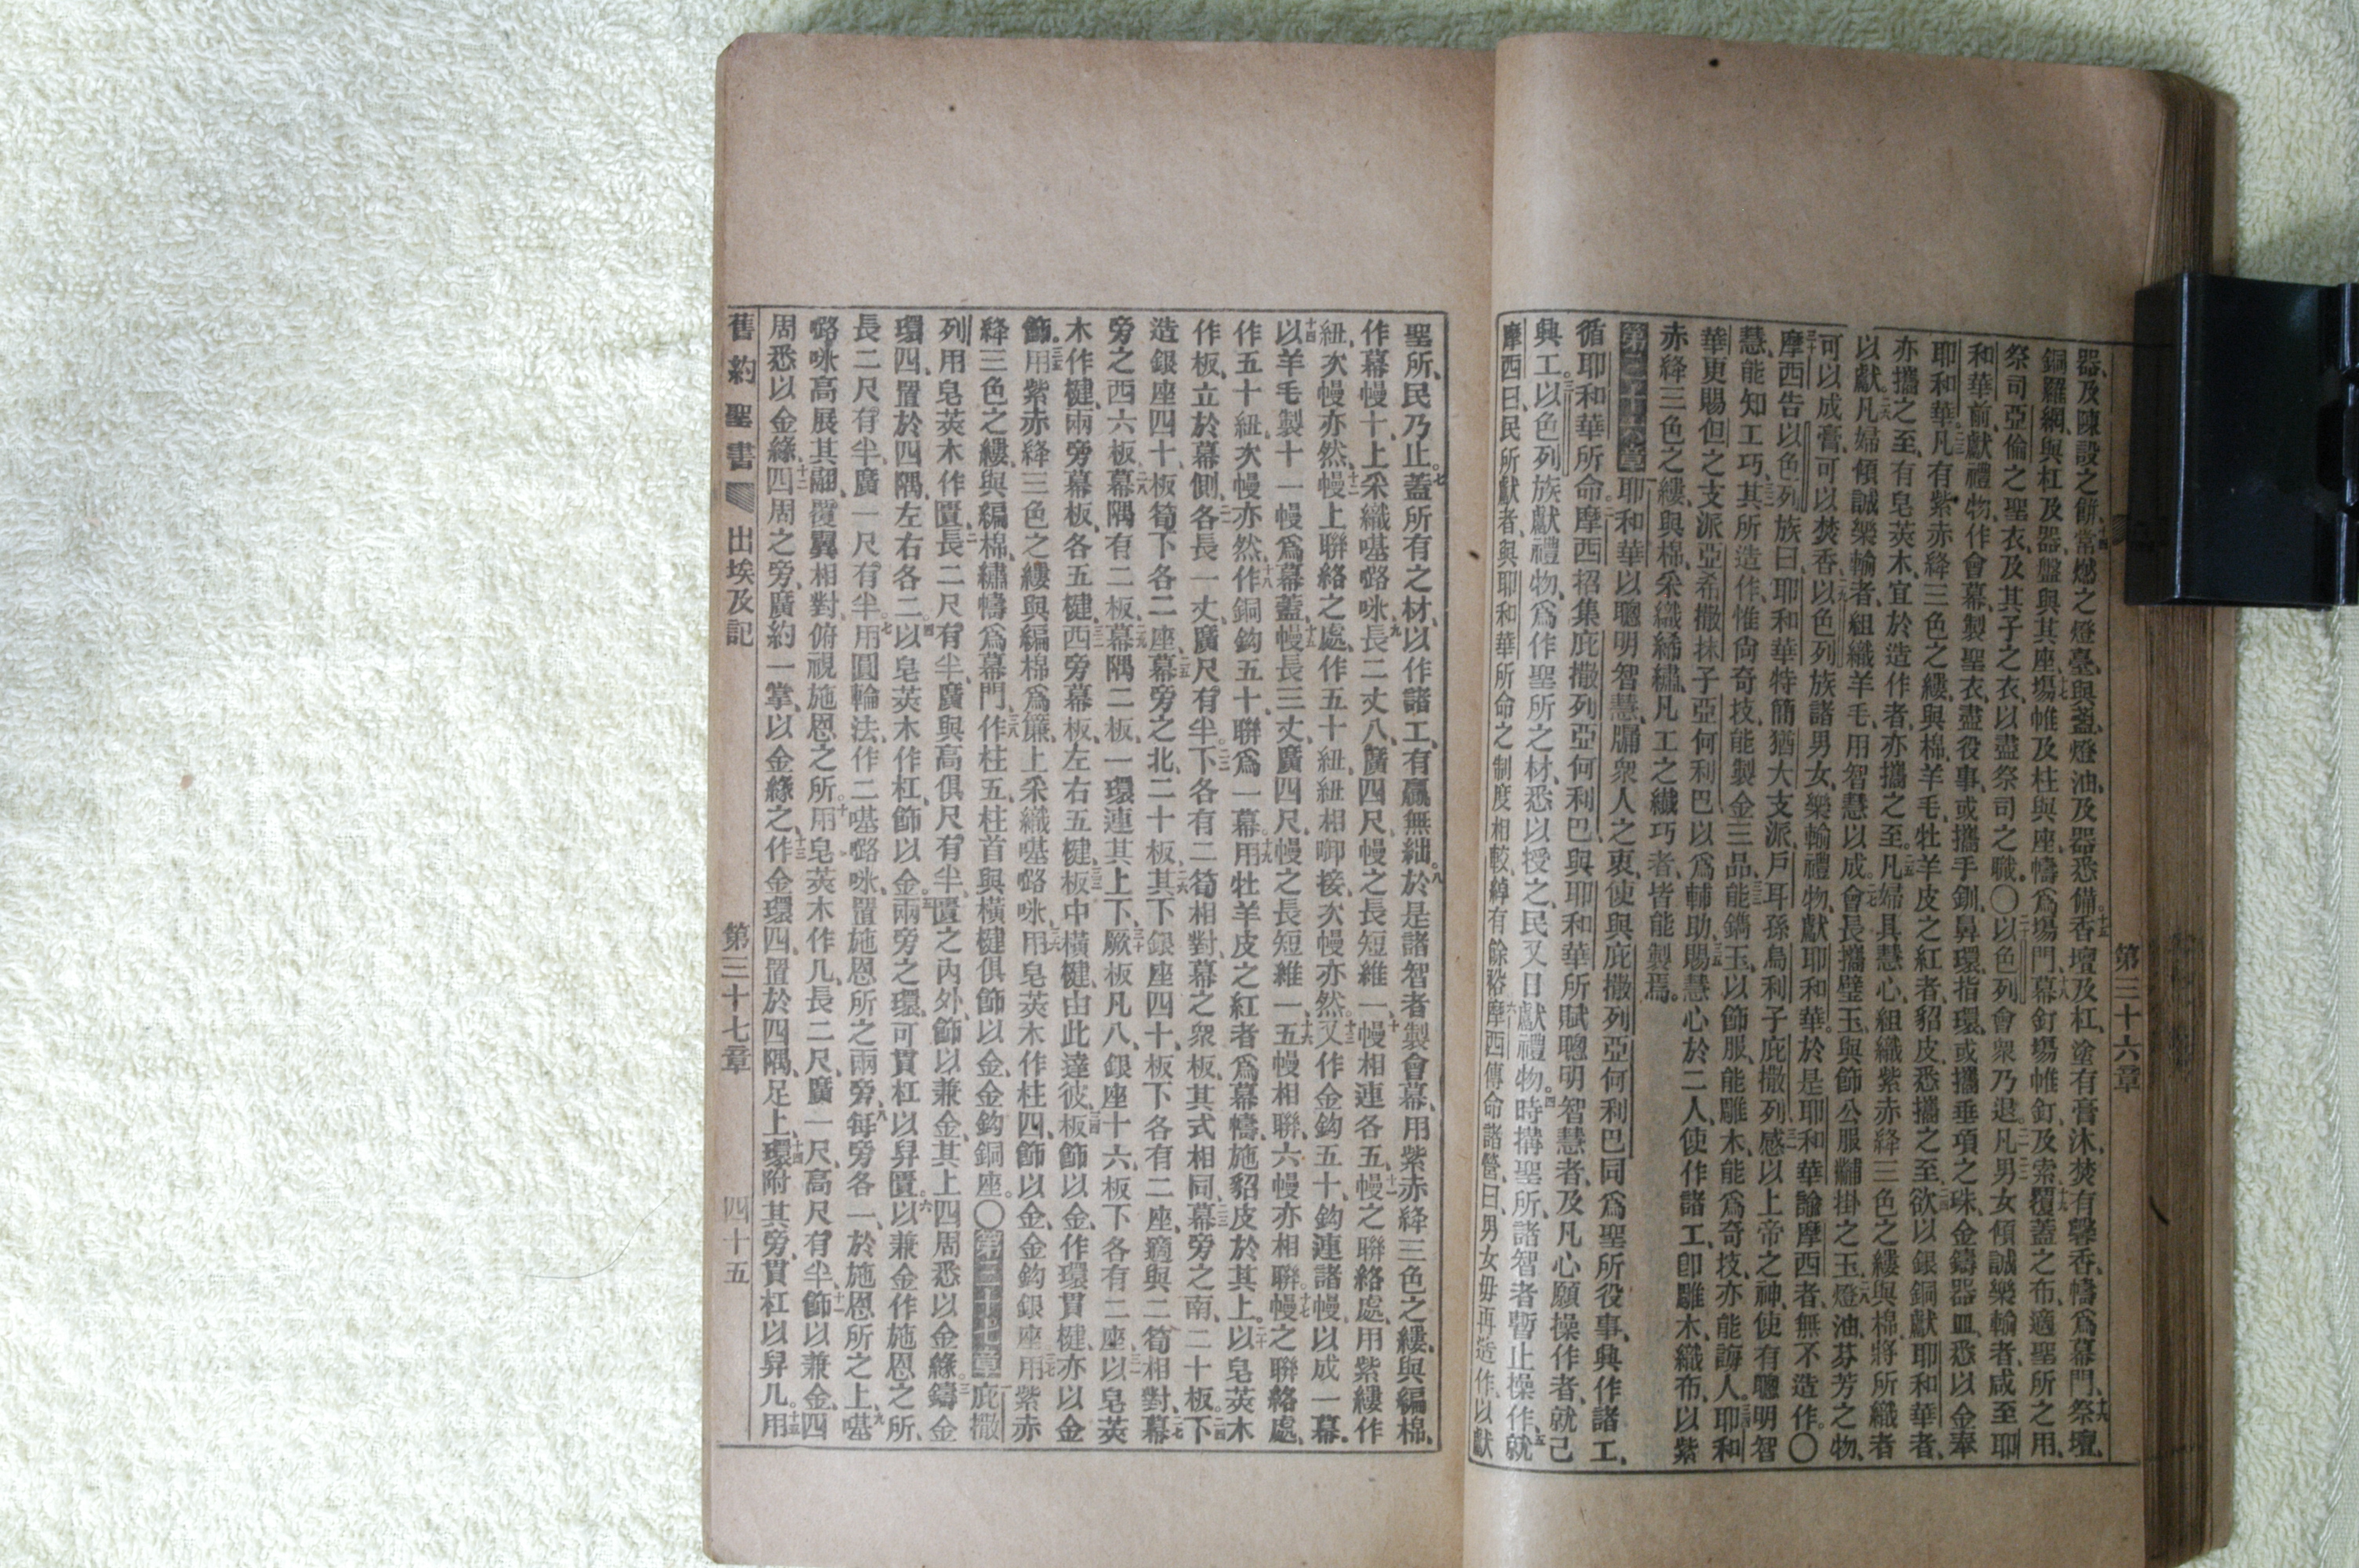 器、及陳設之餅、常燃之燈臺、與盞燈油、及器悉備。香壇及杠、塗有膏沐、焚有馨香、幬爲幕門、祭壇、
銅羅網、與杠及器、盤與其座、場帷及柱與座、幬爲場門、幕釘、場帷釘及索、覆蓋之布、適聖所之用、
祭司亞倫之聖衣、及其子之衣、以盡祭司之職。〇以色列會衆乃退。凡男女傾誠樂輸者、咸至耶
和華前、獻禮物、作會幕、製聖衣、盡役事、或攜手釧、鼻環、指環、或攜垂項之珠、金鑄器皿、悉以金奉
耶和華。凡有紫赤絳三色之縷、與棉、羊毛、牡羊皮之紅者、貂皮、悉攜之至、欲以銀銅獻耶和華者、
亦攜之至、有皂莢木、宜於造作者、亦攜之至。凡婦具慧心、組織紫赤絳三色之縷與棉、將所織者
以獻。凡婦傾誠樂輸者、組織羊毛、用智慧以成。會長攜璧玉、與飾公服黼掛之玉、燈油芬芳之物、
可以成膏、可以焚香。以色列族諸男女、樂輸禮物、獻耶和華。於是耶和華諭摩西者、無不造作。〇
摩西告以色列族曰、耶和華特簡猶大支派、戶耳孫烏利子庇撒列、感以上帝之神、使有聰明智
慧、能知工巧、其所造作、惟尙奇技、能製金三品、能鐫玉、以飾服、能雕木、能爲奇技、亦能誨人、耶和
華更賜但之支派、亞希撒抹子亞何利巴、以爲輔助、賜慧心於二人、使作諸工、卽雕木、織布、以紫
赤絳三色之縷、與棉、采織絺繡、凡工之纎巧者、皆能製焉。
第三十六章 耶和華以聰明智慧、牖衆人之衷、使與庇撒列亞何利巴、同爲聖所役事、興作諸工、
循耶和華所命。摩西招集庇撒列亞何利巴、與耶和華所賦聰明智慧者、及凡心願操作者、就己
興工。以色列族獻禮物、爲作聖所之材、悉以授之、民又日獻禮物。時搆聖所、諸智者暫止操作、就
摩西曰、民所獻者、與耶和華所命之制度相較、綽有餘裕、摩西傳命諸營曰、男女毋再造作、以獻
聖所、民乃止。蓋所有之材、以作諸工、有贏無絀。於是諸智者製會幕、用紫赤絳三色之縷、與編棉、
作幕幔十、上采織𠼻𡀔𠲖、長二丈八、廣四尺、幔之長短維一、幔相連各五、幔之聯絡處、用紫縷作
紐、次幔亦然、幔上聯絡之處、作五十紐、紐相啣接、次幔亦然。又作金鈎五十、鈎連諸幔、以成一幕。
以羊毛製十一幔爲幕蓋、幔長三丈、廣四尺、幔之長短維一、五幔相聯、六幔亦相聯。幔之聯絡處、
作五十紐、次幔亦然、作銅鈎五十、聯爲一幕。用牡羊皮之紅者爲幕幬、施貂皮於其上。以皂莢木
作板、立於幕側、各長一丈、廣尺有半。下各有二筍相對、幕之衆板、其式相同、幕旁之南、二十板。下
造銀座四十、板筍下各二座、幕旁之北二十板、其下銀座四十、板下各有二座、適與二筍相對、幕
旁之西六板、幕隅有二板、幕隅二板、一環連其上下、厥板凡八、銀座十六、板下各有二座、以皂莢
木作楗、兩旁幕板、各五楗、西旁幕板、左右五楗、板中橫楗、由此達彼、板飾以金、作環貫楗、亦以金
飾。用紫赤絳三色之縷、與編棉爲簾、上采織𠼻𡀔𠲖、用皂莢木作柱四、飾以金、金鈎銀座、用紫赤
絳三色之縷、與編棉、繡幬爲幕門、作柱五、柱首與橫楗俱飾以金、金鈎銅座。〇第三十七章 庇撒
列用皂莢木作匱、長二尺有半、廣與高俱尺有半、匱之內外、飾以兼金、其上四周悉以金緣。鑄金
環四、置於四隅、左右各二。以皂莢木作杠、飾以金。兩旁之環、可貫杠以舁匱。以兼金作施恩之所、
長二尺有半、廣一尺有半。用圓輪法、作二𠼻𡀔𠲖、置施恩所之兩旁、每旁各一、於施恩所之上、𠼻
𡀔𠲖高展其翮、覆翼相對、俯視施恩之所。用皂莢木作几、長二尺、廣一尺、高尺有半、飾以兼金、四
周悉以金緣、四周之旁、廣約一掌、以金緣之、作金環四、置於四隅、足上環附其旁、貫杠以舁几。用
舊約聖書 出埃及記 第三十七章 四十五
第三十六章